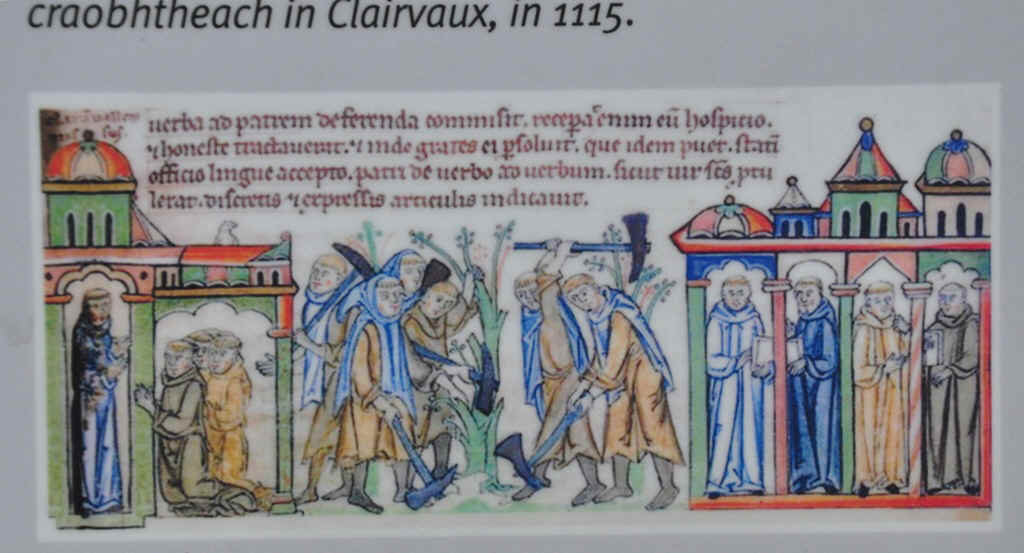 craobhtheach in Clairvaux, in 1115.
uerba ad patrem deferenda commisit. recepta enim eū hospicio.
⁊ honeste tractauerit. ⁊ inde grates ei psoluit. que idem puer. statī
officio lingue accepto. patri de uerbo ad uerbum. sicut uir scs ptu
lerat. discretis ⁊ expressis articulis indicauit.